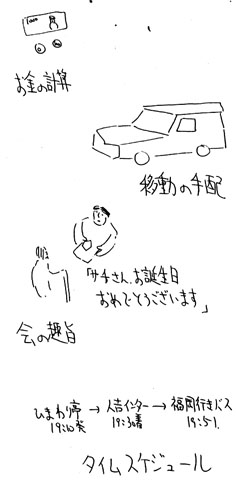 お金の計算
移動の手配
「サチさん、お誕生日
おめでとうございます」
会の趣旨
ひまわり亭 → 人吉インター → 福岡行きバス
19:10発 19:30着 19:51
タイムスケジュール